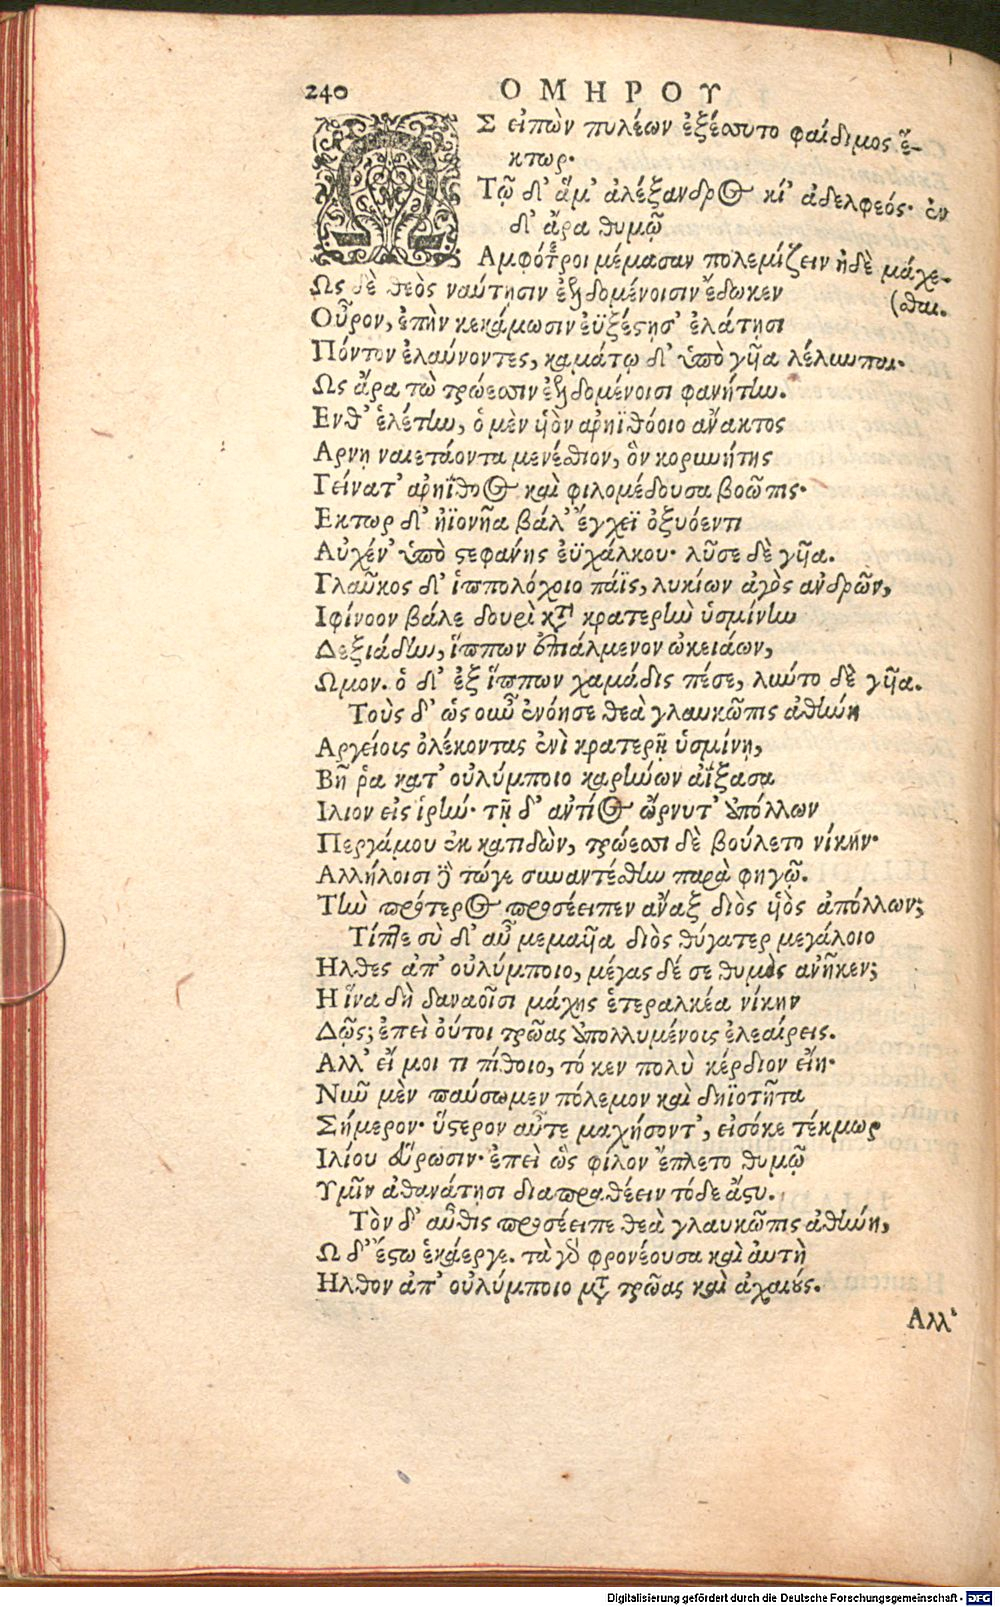 240 ΟΜΗΡΟΥ
ΩΣ εἰπὼν πυλέων ἐξέσσυτο φαίδιμος ἕ-
κτωρ·
Τῷ δ' ἅμ' ἀλέξανδρος κί' ἀδελφεός· ἐν
δ' ἄρα θυμῷ
Αμφότεροι μέμασαν πολεμίζειν ἠδὲ μάχε-
(σθαι.
Ως δὲ θεὸς ναύτῃσιν ἐελδομένοισιν ἔδωκεν
Οὖρον, ἐπὴν κεκάμωσιν ἐϋξέςῃσ' ἐλάτῃσι
Πόντον ἐλαύνοντες, καμάτῳ δ' ὑπὸ γυῖα λέλυνται·
Ως ἄρα τὼ τρώεσσιν ἐελδομένοισι φανήτην.
Ενθ' ἑλέτην, ὁ μὲν υἱὸν ἀρηϊθόοιο ἄνακτος
Αρνῃ ναιετάοντα μενέσθιον, ὃν κορυνήτης
Γείνατ' ἀρηΐθοος καὶ φιλομέδουσα βοῶπις·
Εκτωρ δ' ἠϊονῆα βάλ' ἔγχεϊ ὀξυόεντι
Αὐχέν' ὑπὸ ςεφάνης ἐϋχάλκου· λῦσε δὲ γυῖα.
Γλαῦκος δ' ἱππολόχοιο πάϊς, λυκίων ἀγὸς ἀνδρῶν,
Ιφίνοον βάλε δουρὶ κατὰ κρατερὴν ὑσμίνην
Δεξιάδην, ἵππων ἐπιάλμενον ὠκειάων,
Ωμον. ὁ δ' ἐξ ἵππων χαμάδις πέσε, λύντο δὲ γυῖα.
Τοὺς δ' ὡς οὖν ἐνόησε θεὰ γλαυκῶπις ἀθήνη
Αργείοις ὀλέκοντας ἐνὶ κρατερῇ ὑσμίνῃ,
Βῆ ῥα κατ' οὐλύμποιο καρήνων ἀΐξασα
Ιλιον εἰς ἱρήν· τῇ δ' ἀντίος ὤρνυτ' ἀπόλλων
Περγάμου ἐκ κατιδὼν, τρώεσσι δὲ βούλετο νίκην·
Αλλήλοισι δὲ τώγε συναντέσθην παρὰ φηγῷ.
Τὴν πρότερος προσέειπεν ἄναξ διὸς υἱὸς ἀπόλλων;
Τίπτε σὺ δ' αὖ μεμαυῖα διὸς θύγατερ μεγάλοιο
Ηλθες ἀπ' οὐλύμποιο, μέγας δέ σε θυμὸς ἀνῆκεν;
Η ἵνα δὴ δαναοῖσι μάχης ἑτεραλκέα νίκην
Δῷς; ἐπεὶ οὔτοι τρῶας ἀπολλυμένοις ἐλεαίρεις.
Αλλ' εἴ μοι τι πίθοιο, τό κεν πολὺ κέρδιον εἴη·
Νῦν μὲν παύσωμεν πόλεμον καὶ δηϊοτῆτα
Σήμερον· ὕςερον αὖτε μαχήσοντ', εἰσόκε τέκμωρ
Ιλίου εὕρωσιν· ἐπεὶ ὣς φίλον ἔπλετο θυμῷ
Υμῖν ἀθανάτῃσι διαπραθέειν τόδε ἄςυ.
Τὸν δ' αὖθις προσέειπε θεὰ γλαυκῶπις ἀθήνη,
Ω δ' ἔςω ἑκάεργε. τὰ γὰρ φρονέουσα καὶ ἀυτὴ
Ηλθον ἀπ' οὐλύμποιο μετὰ τρῶας καὶ ἀχαιούς.
Αλλ'
Digitalisierung gefördert durch die Deutsche Forschungsgemeinschaft - DFG